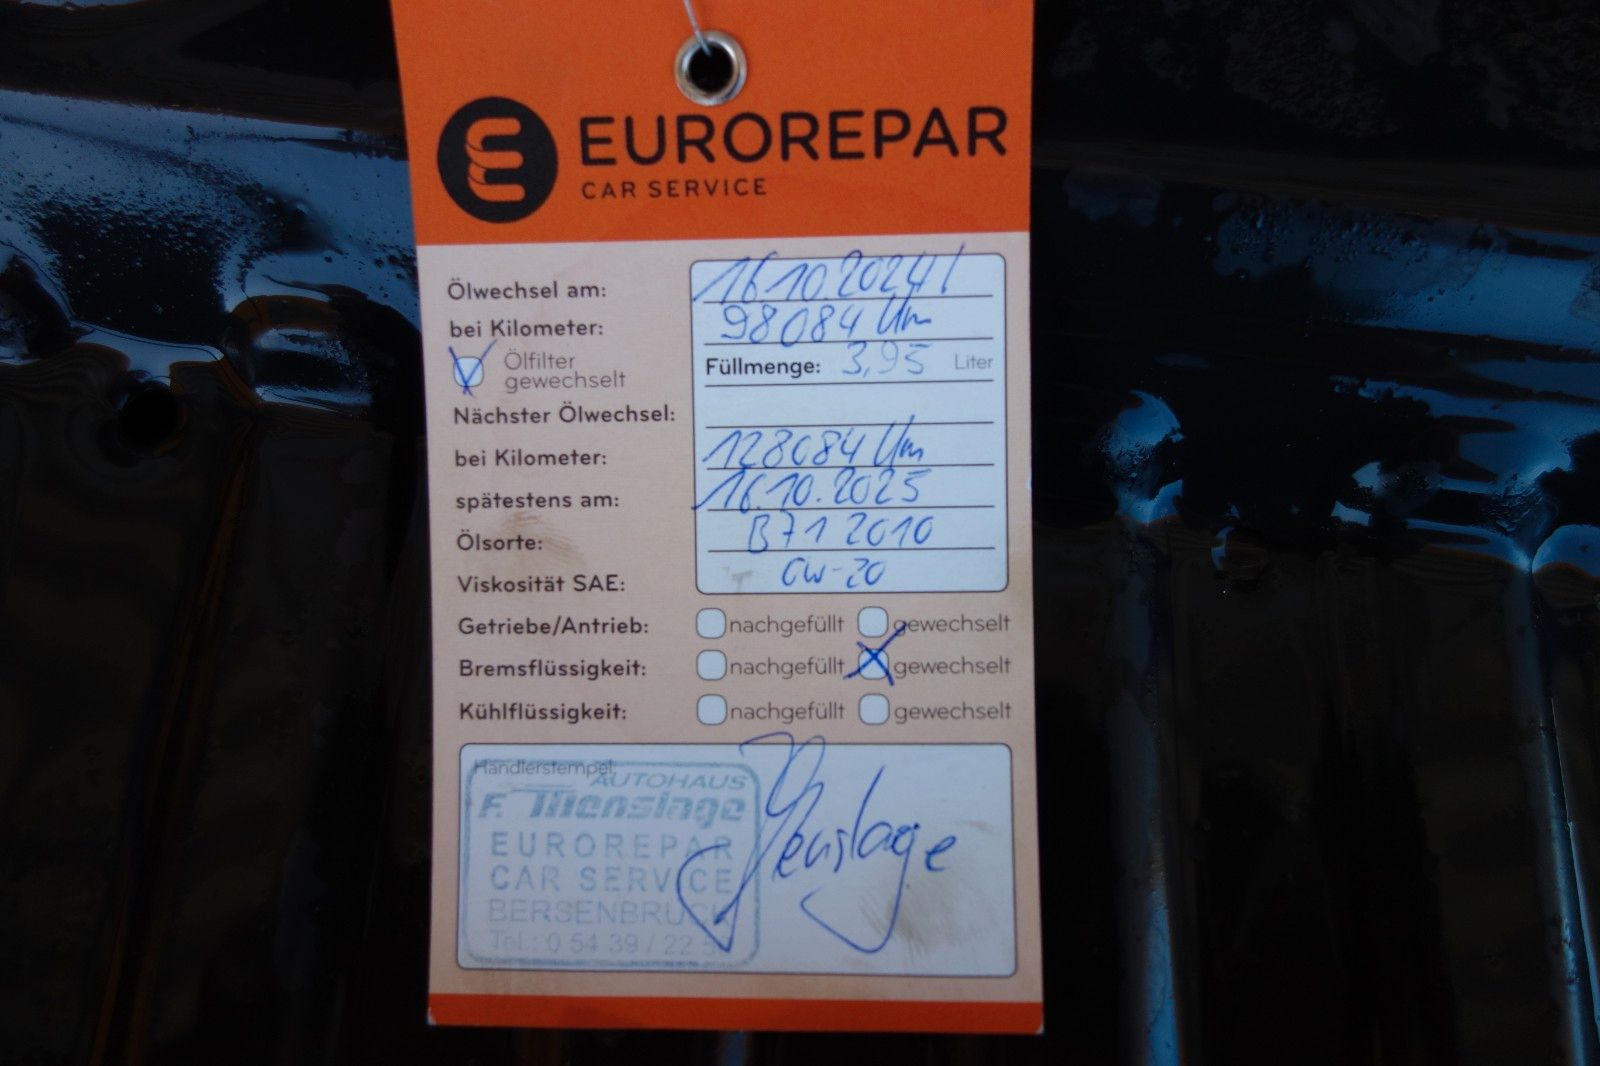 EUROREPAR
CAR SERVICE
Ölwechsel am: 16.10.2024
bei Kilometer: 98084 Km
Ölfilter gewechselt
Füllmenge: 3,95 Liter
Nächster Ölwechsel:
bei Kilometer: 128084 Km
spätestens am: 16.10.2025
Ölsorte: B71 2010
Viskosität SAE: 0W-20
Getriebe/Antrieb: nachgefüllt gewechselt
Bremsflüssigkeit: nachgefüllt gewechselt
Kühlflüssigkeit: nachgefüllt gewechselt
Händlerstempel:
AUTOHAUS
F. Menslage
EUROREPAR
CAR SERVICE
BERSENBRÜCK
Tel.: 0 54 39 / 22
Menslage